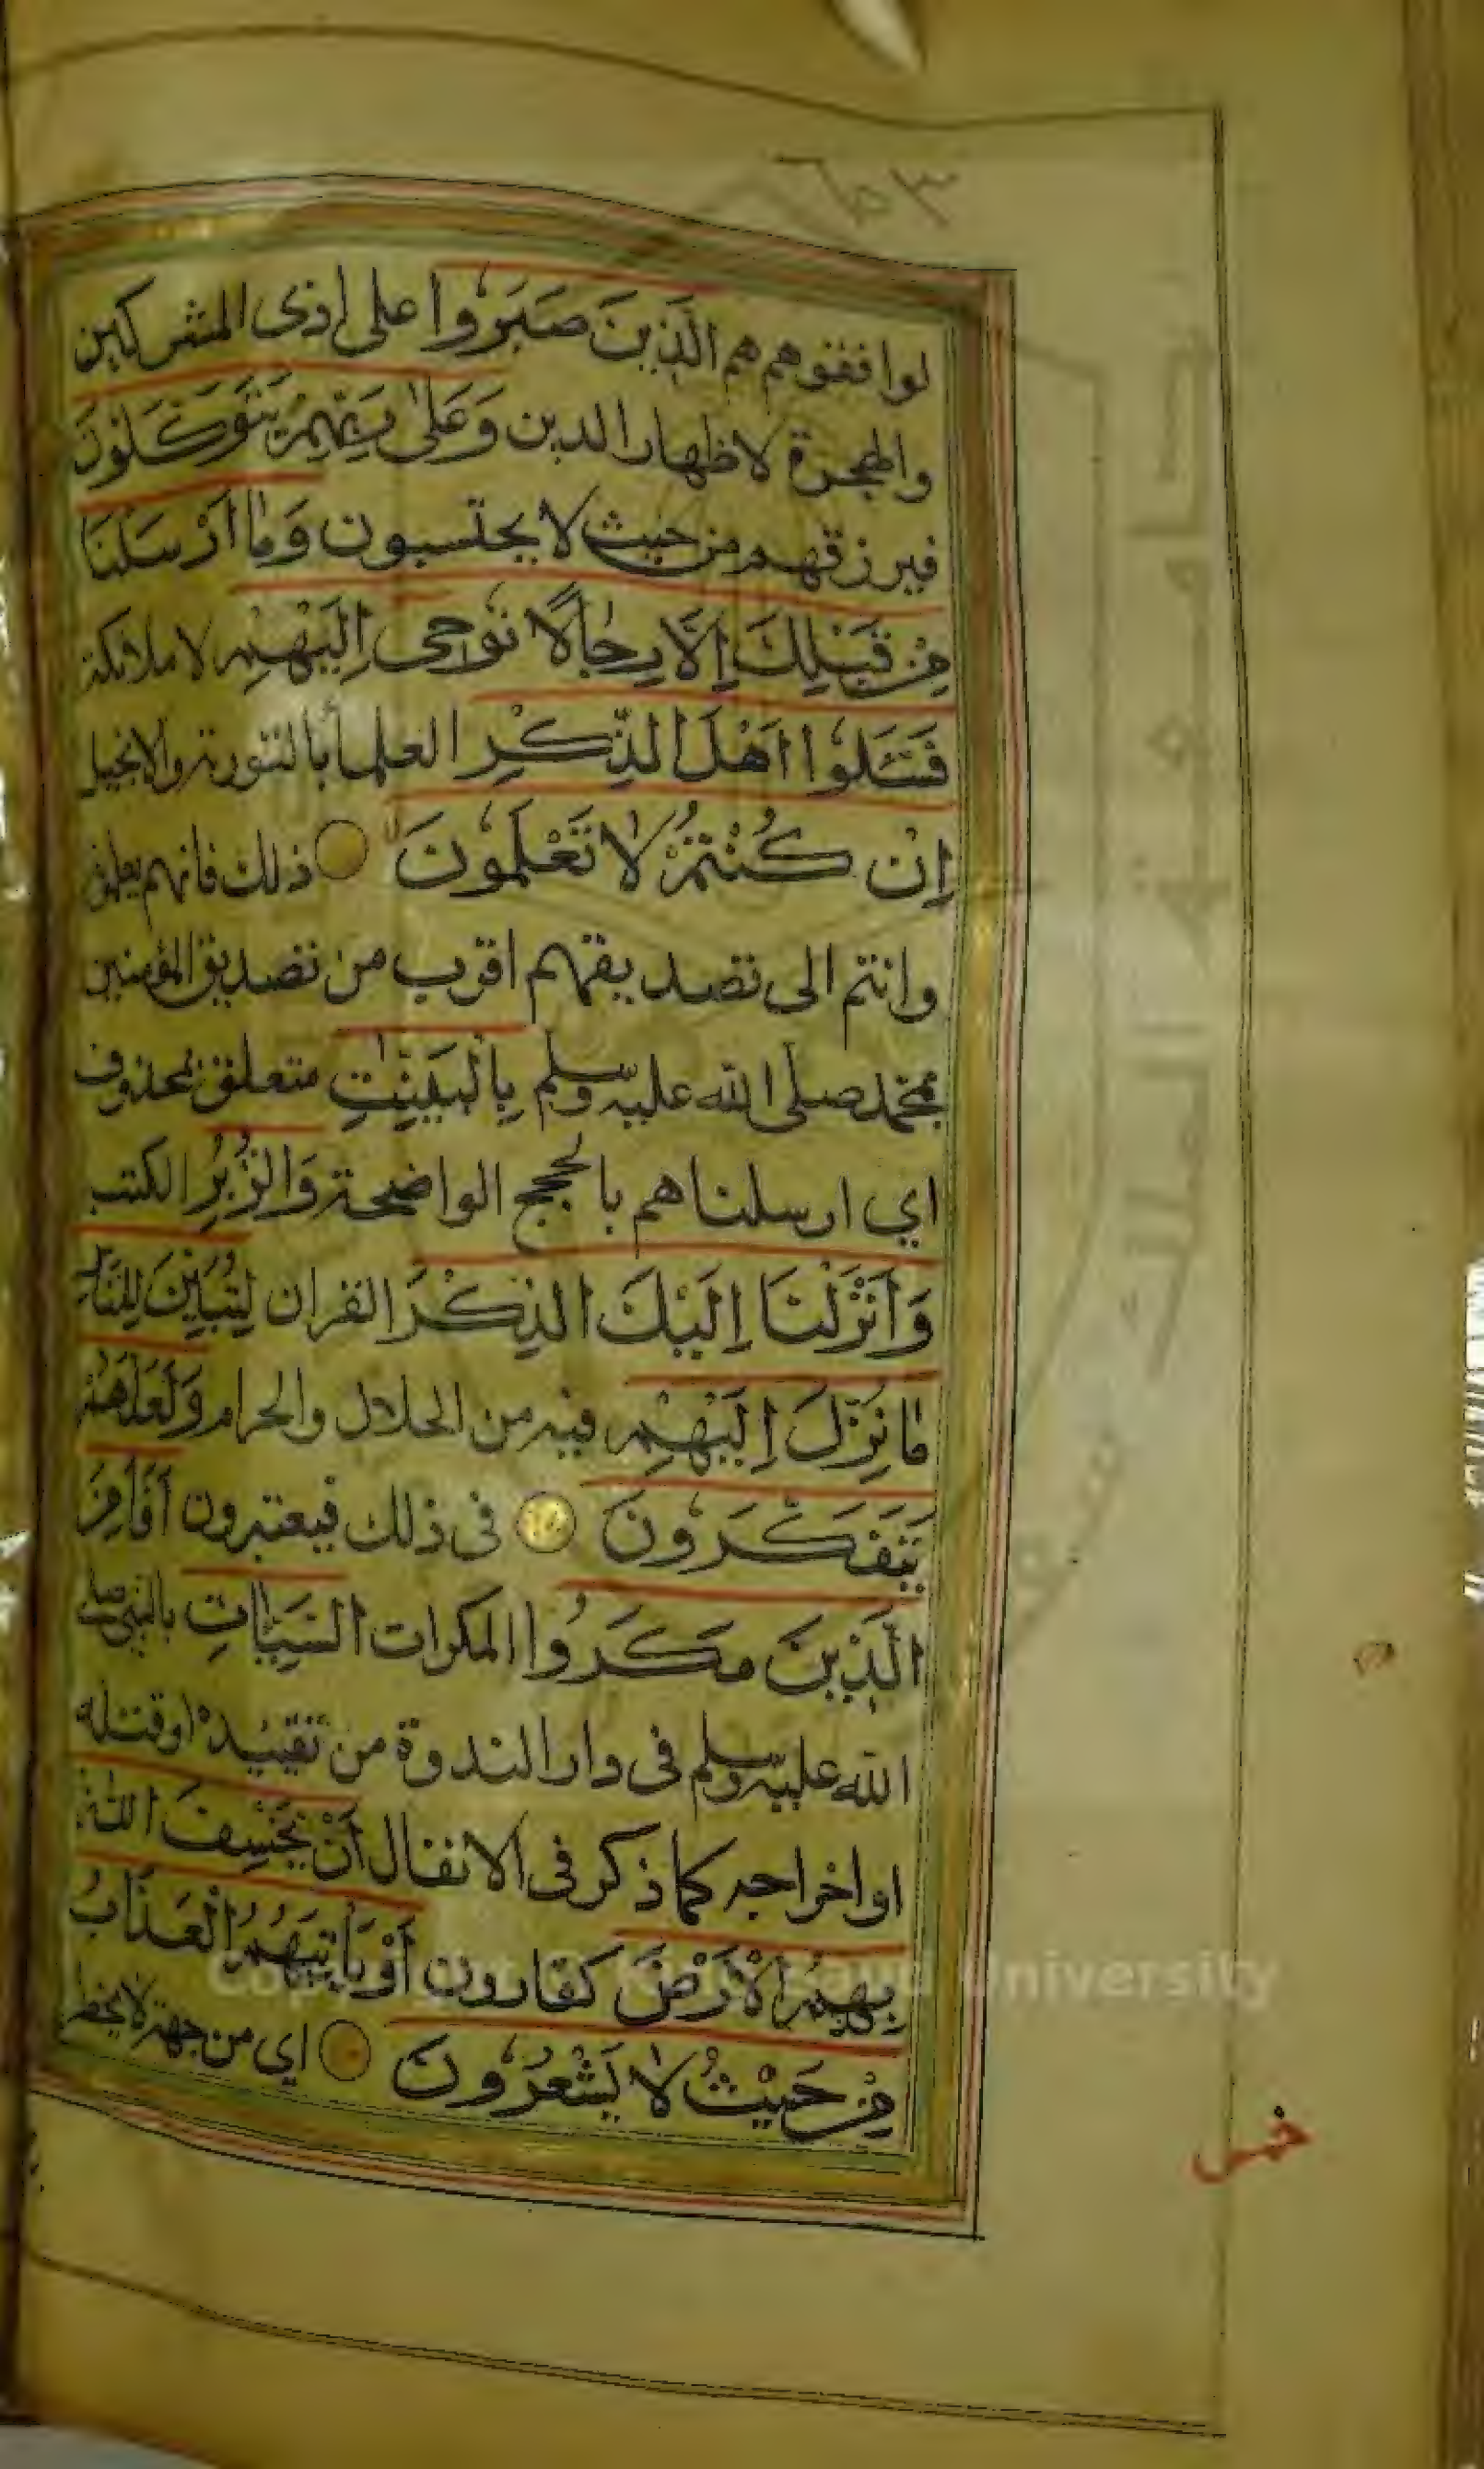 لوافقوهم هم الَّذِينَ صَبَرُوا على اذى المشركين
والهجرة لاظهار الدين وَعَلٰى رَبِّهِمْ يَتَوَكَّلُونَ
فيرزقهم من حيث لا يحتسبون وَمَا أَرْسَلْنَا
مِنْ قَبْلِكَ إِلَّا رِجَالًا نُوحِى إِلَيْهِمْ لا ملائكة
فَسْئَلُوا أَهْلَ الذِّكْرِ العلماء بالتورية والانجيل
إِنْ كُنْتُمْ لَا تَعْلَمُونَ ذلك فانهم يعلمونه
وانتم الى تصديقهم اقرب من تصديق المؤمنين
بمحمد صلى الله عليه وسلم بِالْبَيِّنٰتِ متعلق بمحذوف
اي ارسلناهم بالحجج الواضحة وَالزُّبُرِ الكتب
وَأَنْزَلْنَا إِلَيْكَ الذِّكْرَ القران لِتُبَيِّنَ لِلنَّاسِ
مَا نُزِّلَ إِلَيْهِمْ فيه من الحلال والحرام وَلَعَلَّهُمْ
يَتَفَكَّرُونَ فى ذلك فيعتبرون أَفَأَمِنَ
الَّذِينَ مَكَرُوا المكرات السَّيِّاٰتِ بالنبى صلى
الله عليه وسلم فى دار الندوة من تقييده او قتله
او اخراجه كما ذكر فى الانفال أَنْ يَخْسِفَ اللّٰهُ
بِهِمُ الْأَرْضَ كقارون أَوْ يَأْتِيَهُمُ الْعَذَابُ
مِنْ حَيْثُ لَا يَشْعُرُونَ اي من جهة لا يخطر
خمس
جامعة الملك سعود
Copyright © King Saud University